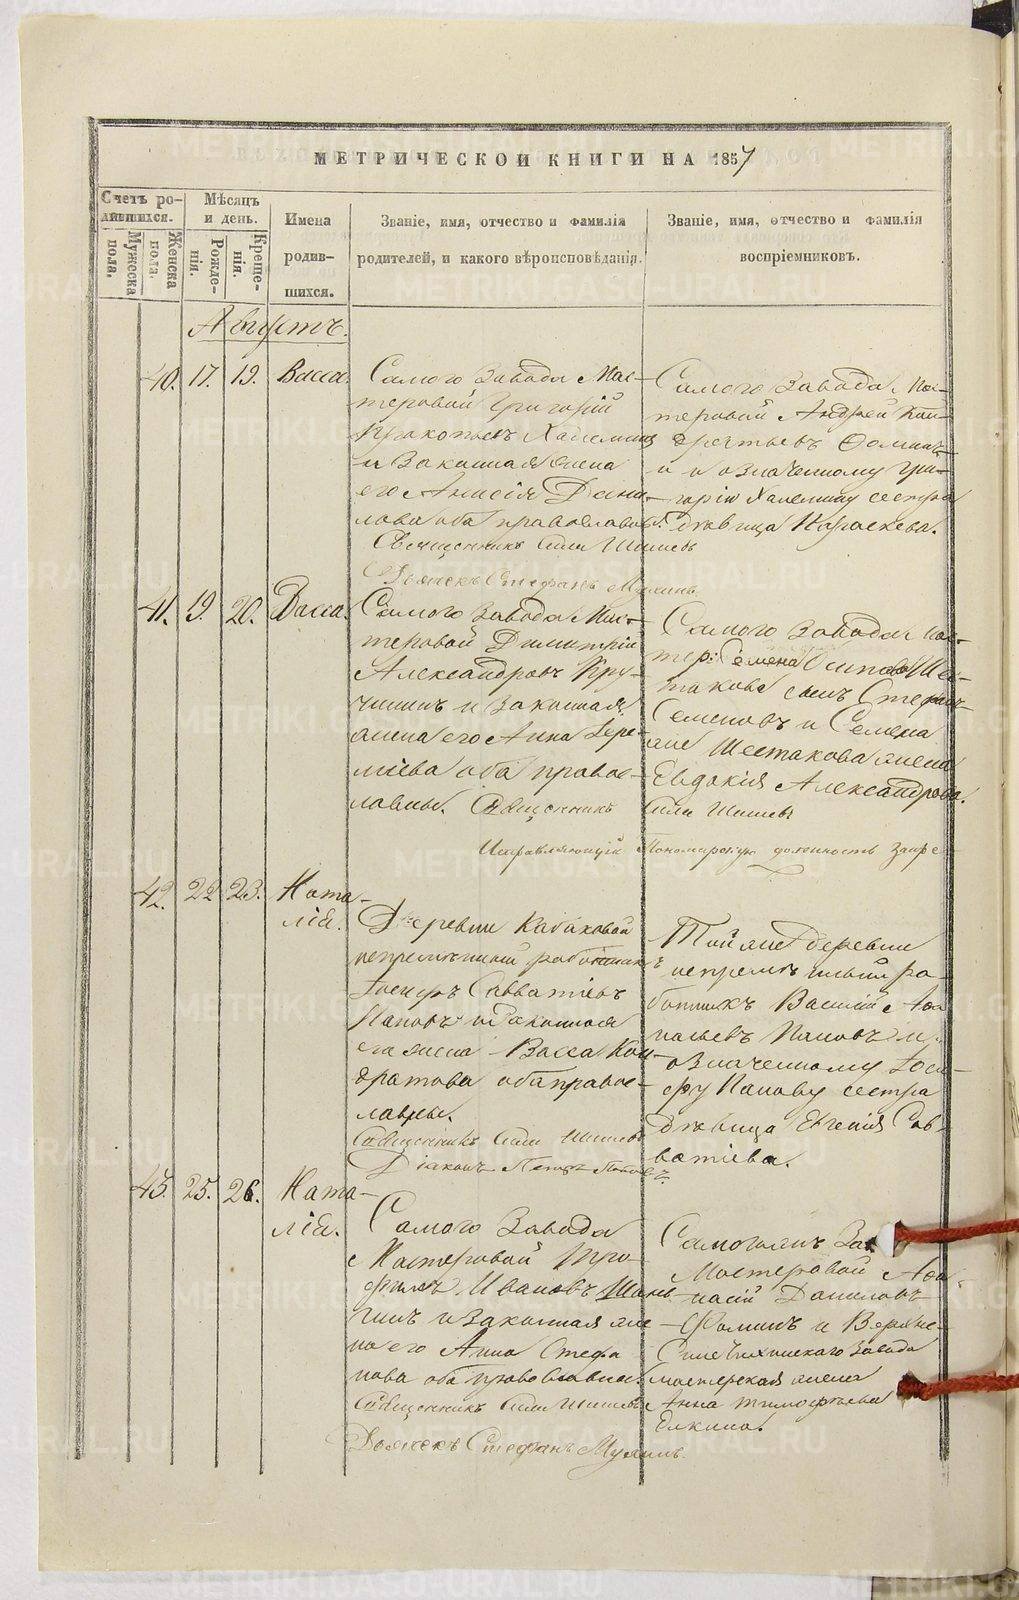 МЕТРИЧЕСКОЙ КНИГИ НА 1857
Счетъ ро-
дившихся.
Мѣсяцъ
и день.
Мужеска
пола.
Женска
пола.
Рожде-
нія.
Креще-
нія.
Имена
родив-
шихся.
Званіе, имя, отчество и фамилія
родителей, и какого вѣроисповѣданія.
Званіе, имя, отчество и фамилія
воспріемниковъ.
Августъ.
40. 17. 19. Васса.
Самого Завода Мас-
теровой Григорій
Прокопьевъ
и Законная жена
его Анисія Дани-
лова оба православн.
Самого Завода Мас-
теровой Андрей Кон-
дратьевъ Фоминъ
и означенному Гри-
горію сестра
дѣвица Параскева.
Священникъ Шишевъ
Дьячекъ Стефанъ Мухинъ
41. 19. 20. Васса.
Самого Завода Мас-
теровой Димитрій
Александровъ Кру-
чининъ и Законная
жена его Анна Ере-
мѣева оба правос-
лавны. Священникъ Шишевъ
Самого Завода мас-
тер: Семена Осипова Шес-
такова сынъ Стефанъ
Семеновъ и Семена
же Шестакова жена
Евдокія Александрова.
Исправляющій Пономарскую должность
42. 22. 23. Ната-
лія.
Деревни Кабаковой
непремѣнный работникъ
Іосифъ Савватіевъ
Пановъ и Законная
его жена Васса Кон-
дратова оба правос-
лавны.
Священникъ Шишевъ
Діаконъ Петръ Поповъ
Той же деревни
непремѣнный ра-
ботникъ Василій Афа
насьевъ Пановъ и
означенному Іоси-
фу Панову сестра
дѣвица Евгенія Сав-
ватіева.
43. 25. 26. Ната-
лія.
Самого Завода
Мастеровой Тро-
фимъ Ивановъ Шань-
гинъ и Законная же-
на его Анна Стефа
нова оба православны.
Священникъ Шишевъ
Дьячекъ Стефанъ Мухинъ
Самого жъ Зав
Мастеровой Афа-
насій Даниловъ
Фоминъ и Верхне-
Синячихинскаго Завода
мастерская жена
Анна Тимофѣева
Елкина.
METRIKI.GASO-URAL.RU